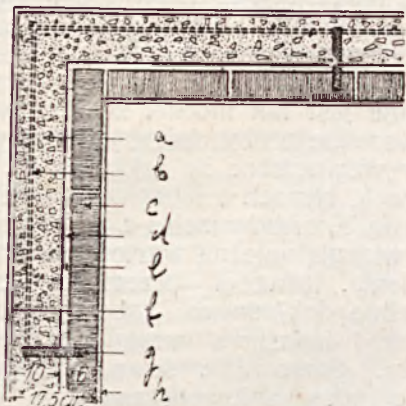 a
b
c
d
e
f
g
h
10 6
17,5 cm